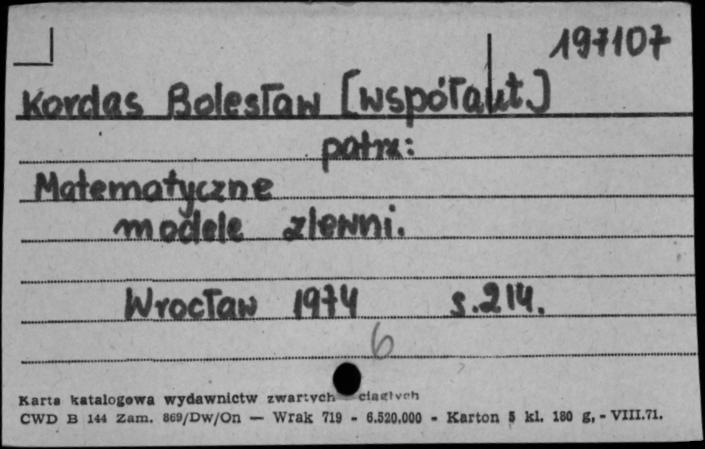 197107
Kordas Bolesław [współaut.]
patrz:
Matematyczne
modele zlewni.
Wrocław 1974 s.214.
6
Karta katalogowa wydawnictw zwartych ciągłych
CWD B 144 Zam. 869/Dw/On — Wrak 719 - 6.520.000 - Karton 5 kl. 180 g. - VIII.71.